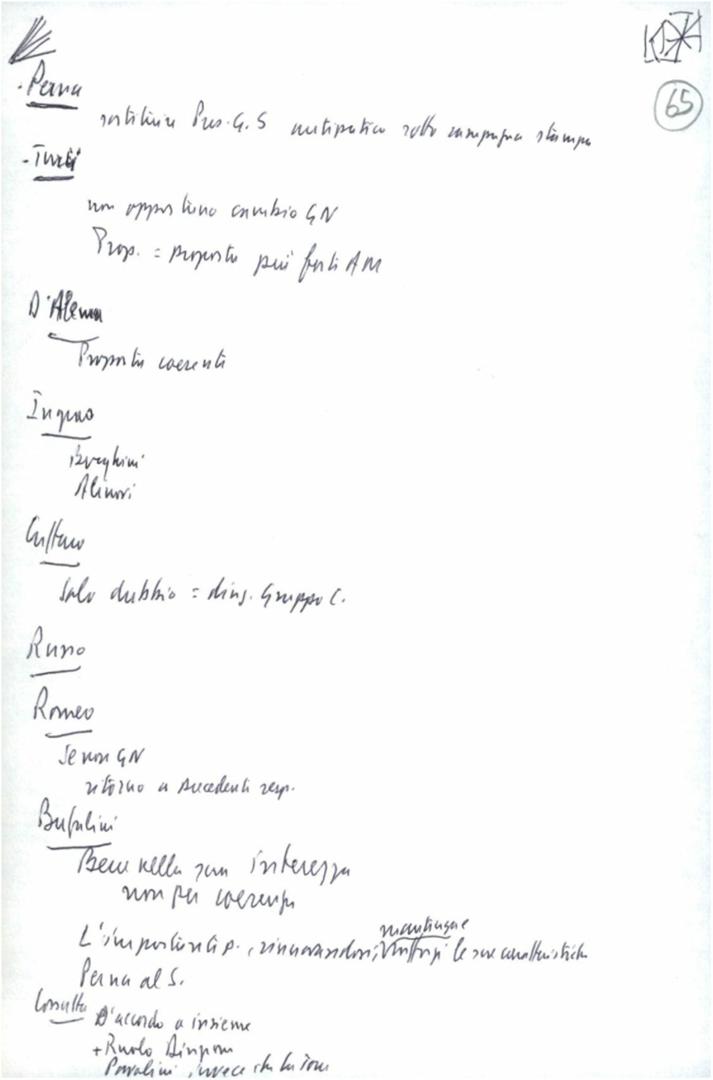 65
- Perna
sostituire Pres. G.S antipatico sotto campagna stampa
- Turci
non opportuno cambio GN
Prop. = proposte più forti AM
D'Alema
Proposta coerente
Ingrao
Borghini
Alinovi
Cuffaro
Solo dubbio = dirig. Gruppo C.
Russo
Romeo
Se non GN
ritorno a precedenti resp.
Bufalini
Bene nella sua interezza
non per coerenza
L'important è p. , rinnovandosi, mantingae le sue caratteristiche
Perna al S.
Consulta
D'accordo a insieme
+ Ruolo
invece